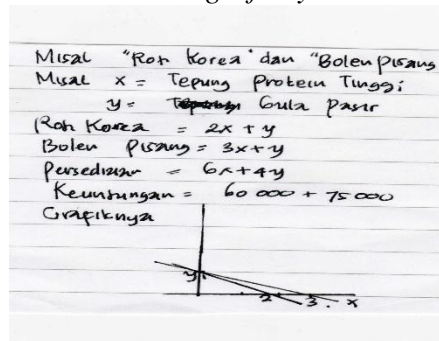 Misal "Roti Korea" dan "Bolen Pisang
Misal x = Tepung Protein Tinggi
y = Gula Pasir
Roti Korea = 2x + y
Bolen Pisang = 3x + y
Persediaan = 6x + 4y
Keuntungan = 60 000 + 75 000
Grafiknya
y
2 3 x